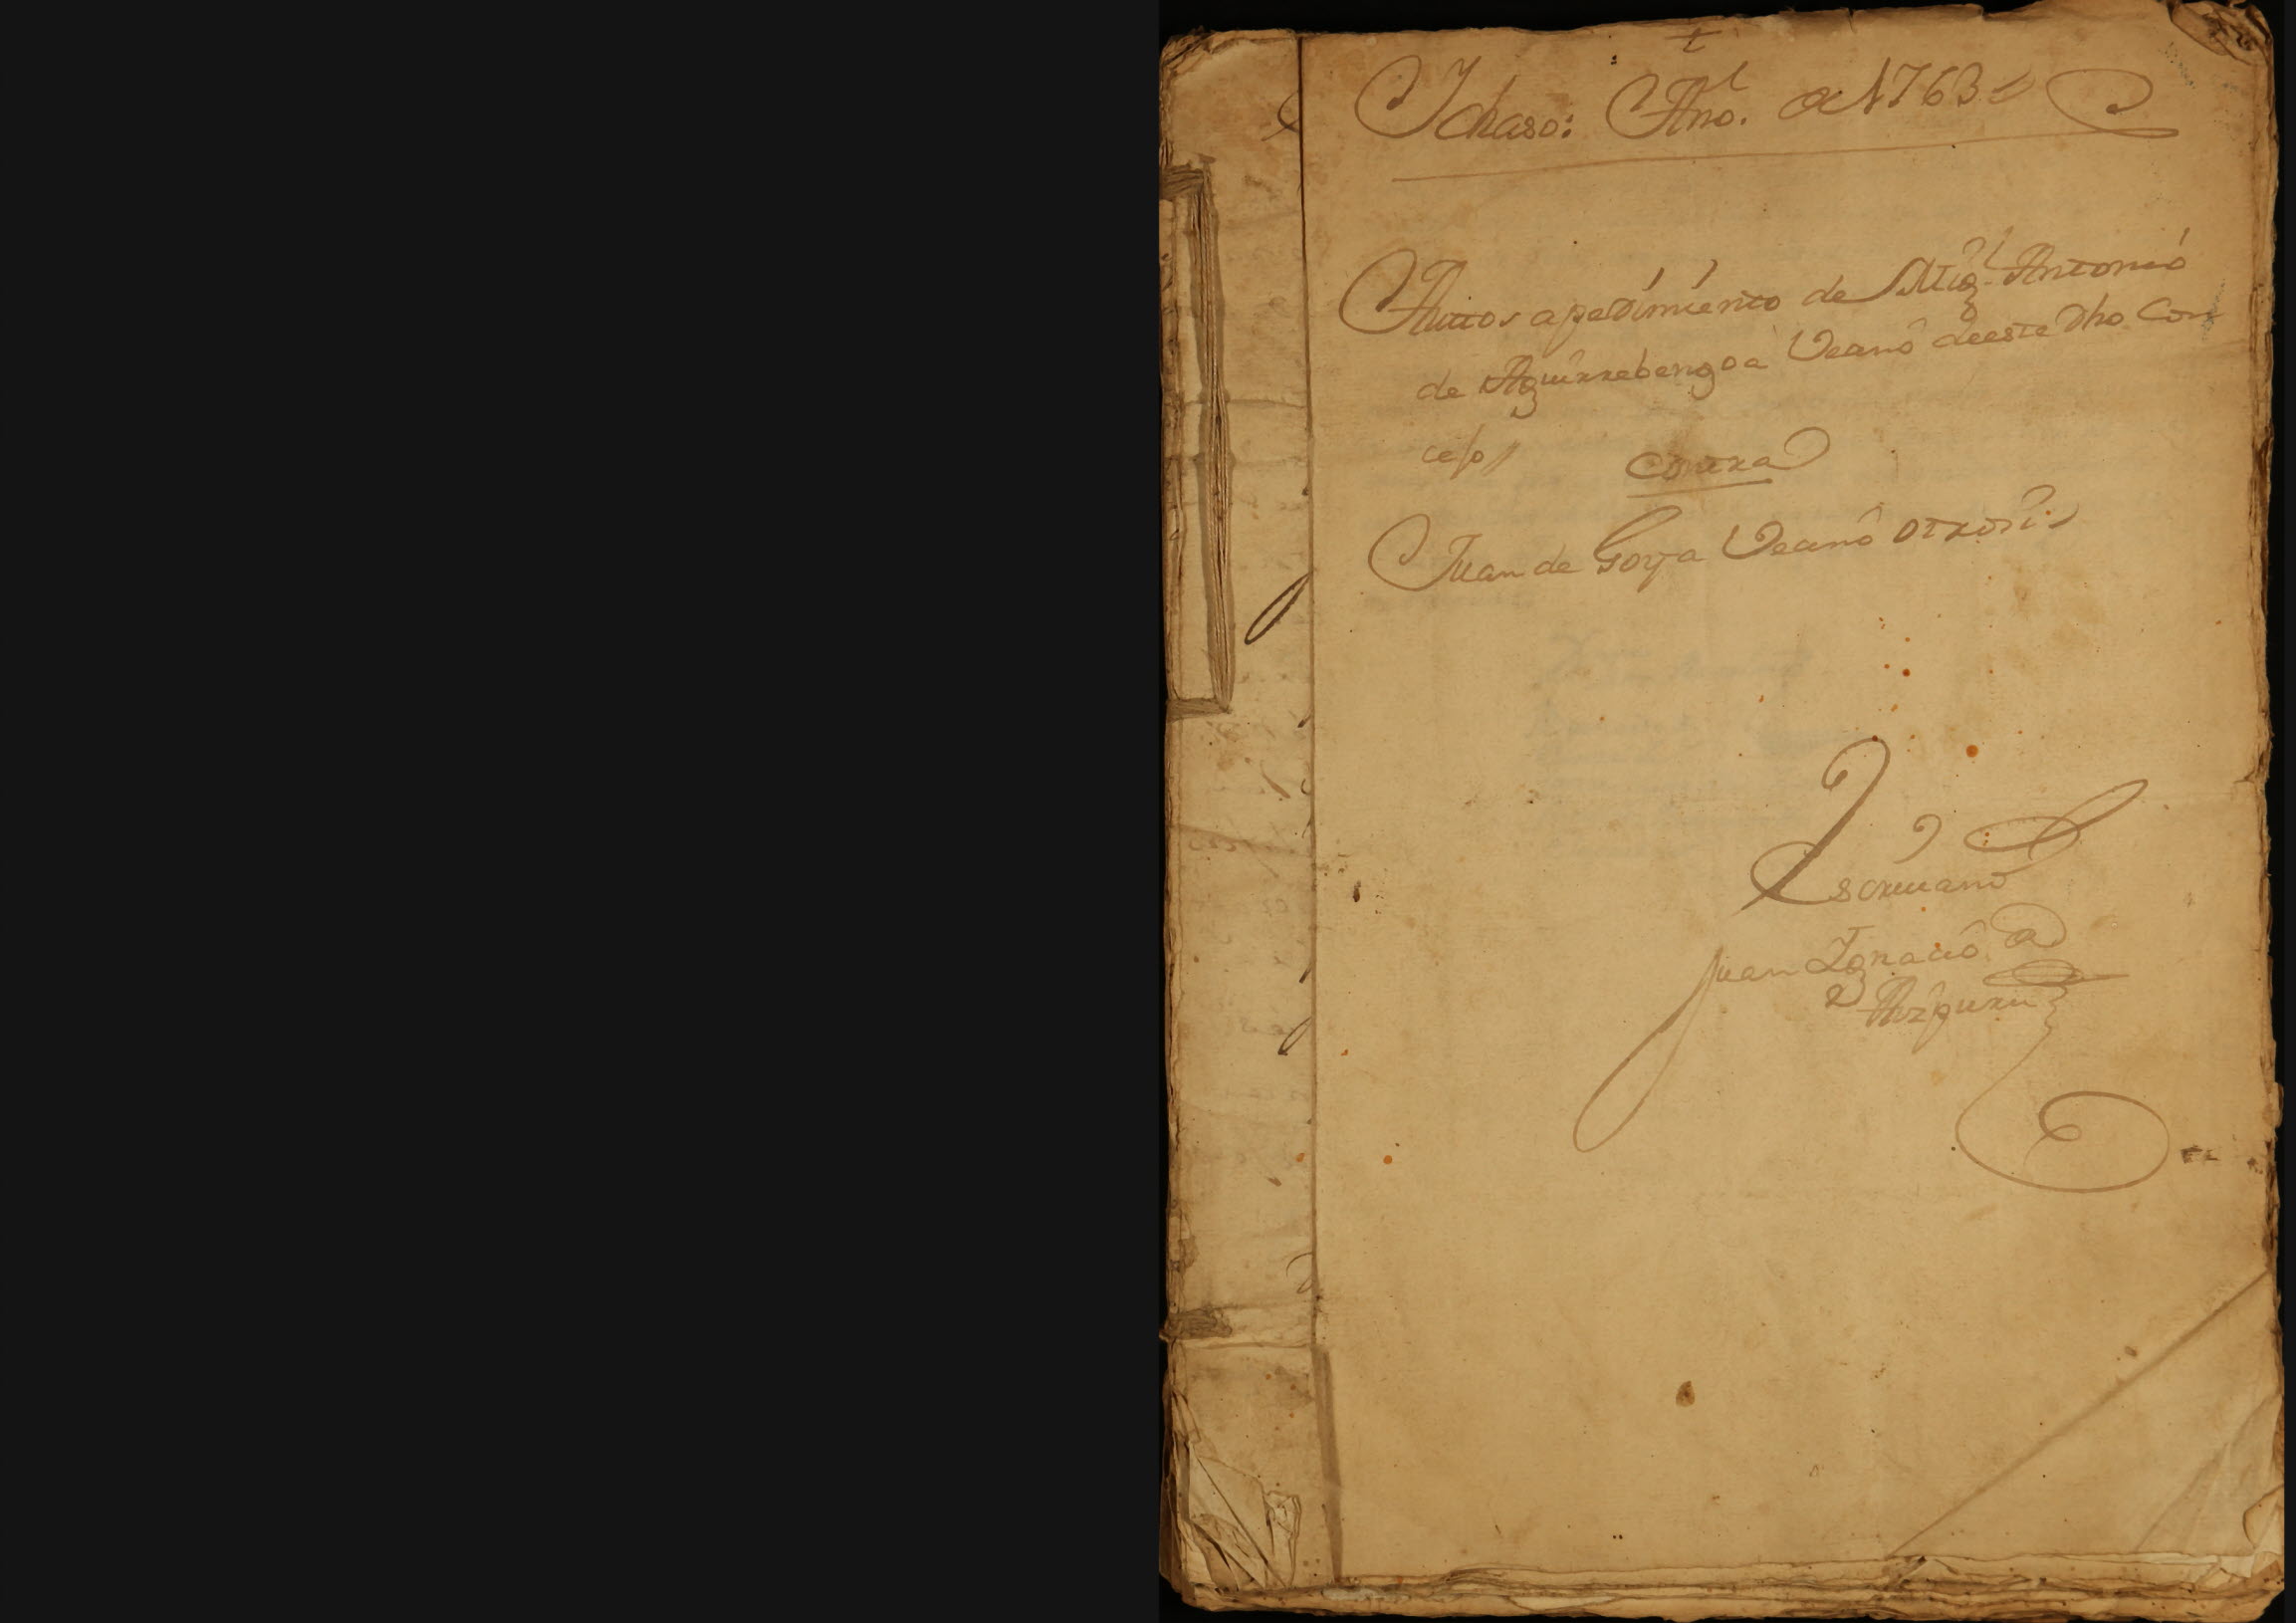 +
Ichaso: Año. de 1763
Auttos a pedimiento de Migl. Antonio
de Aguirrebengoa Vecino de este dho Con
cejo
Contra
Juan de Goya Vecino otrosi.
Escriuano
Juan Ignacio de
Aizpuru